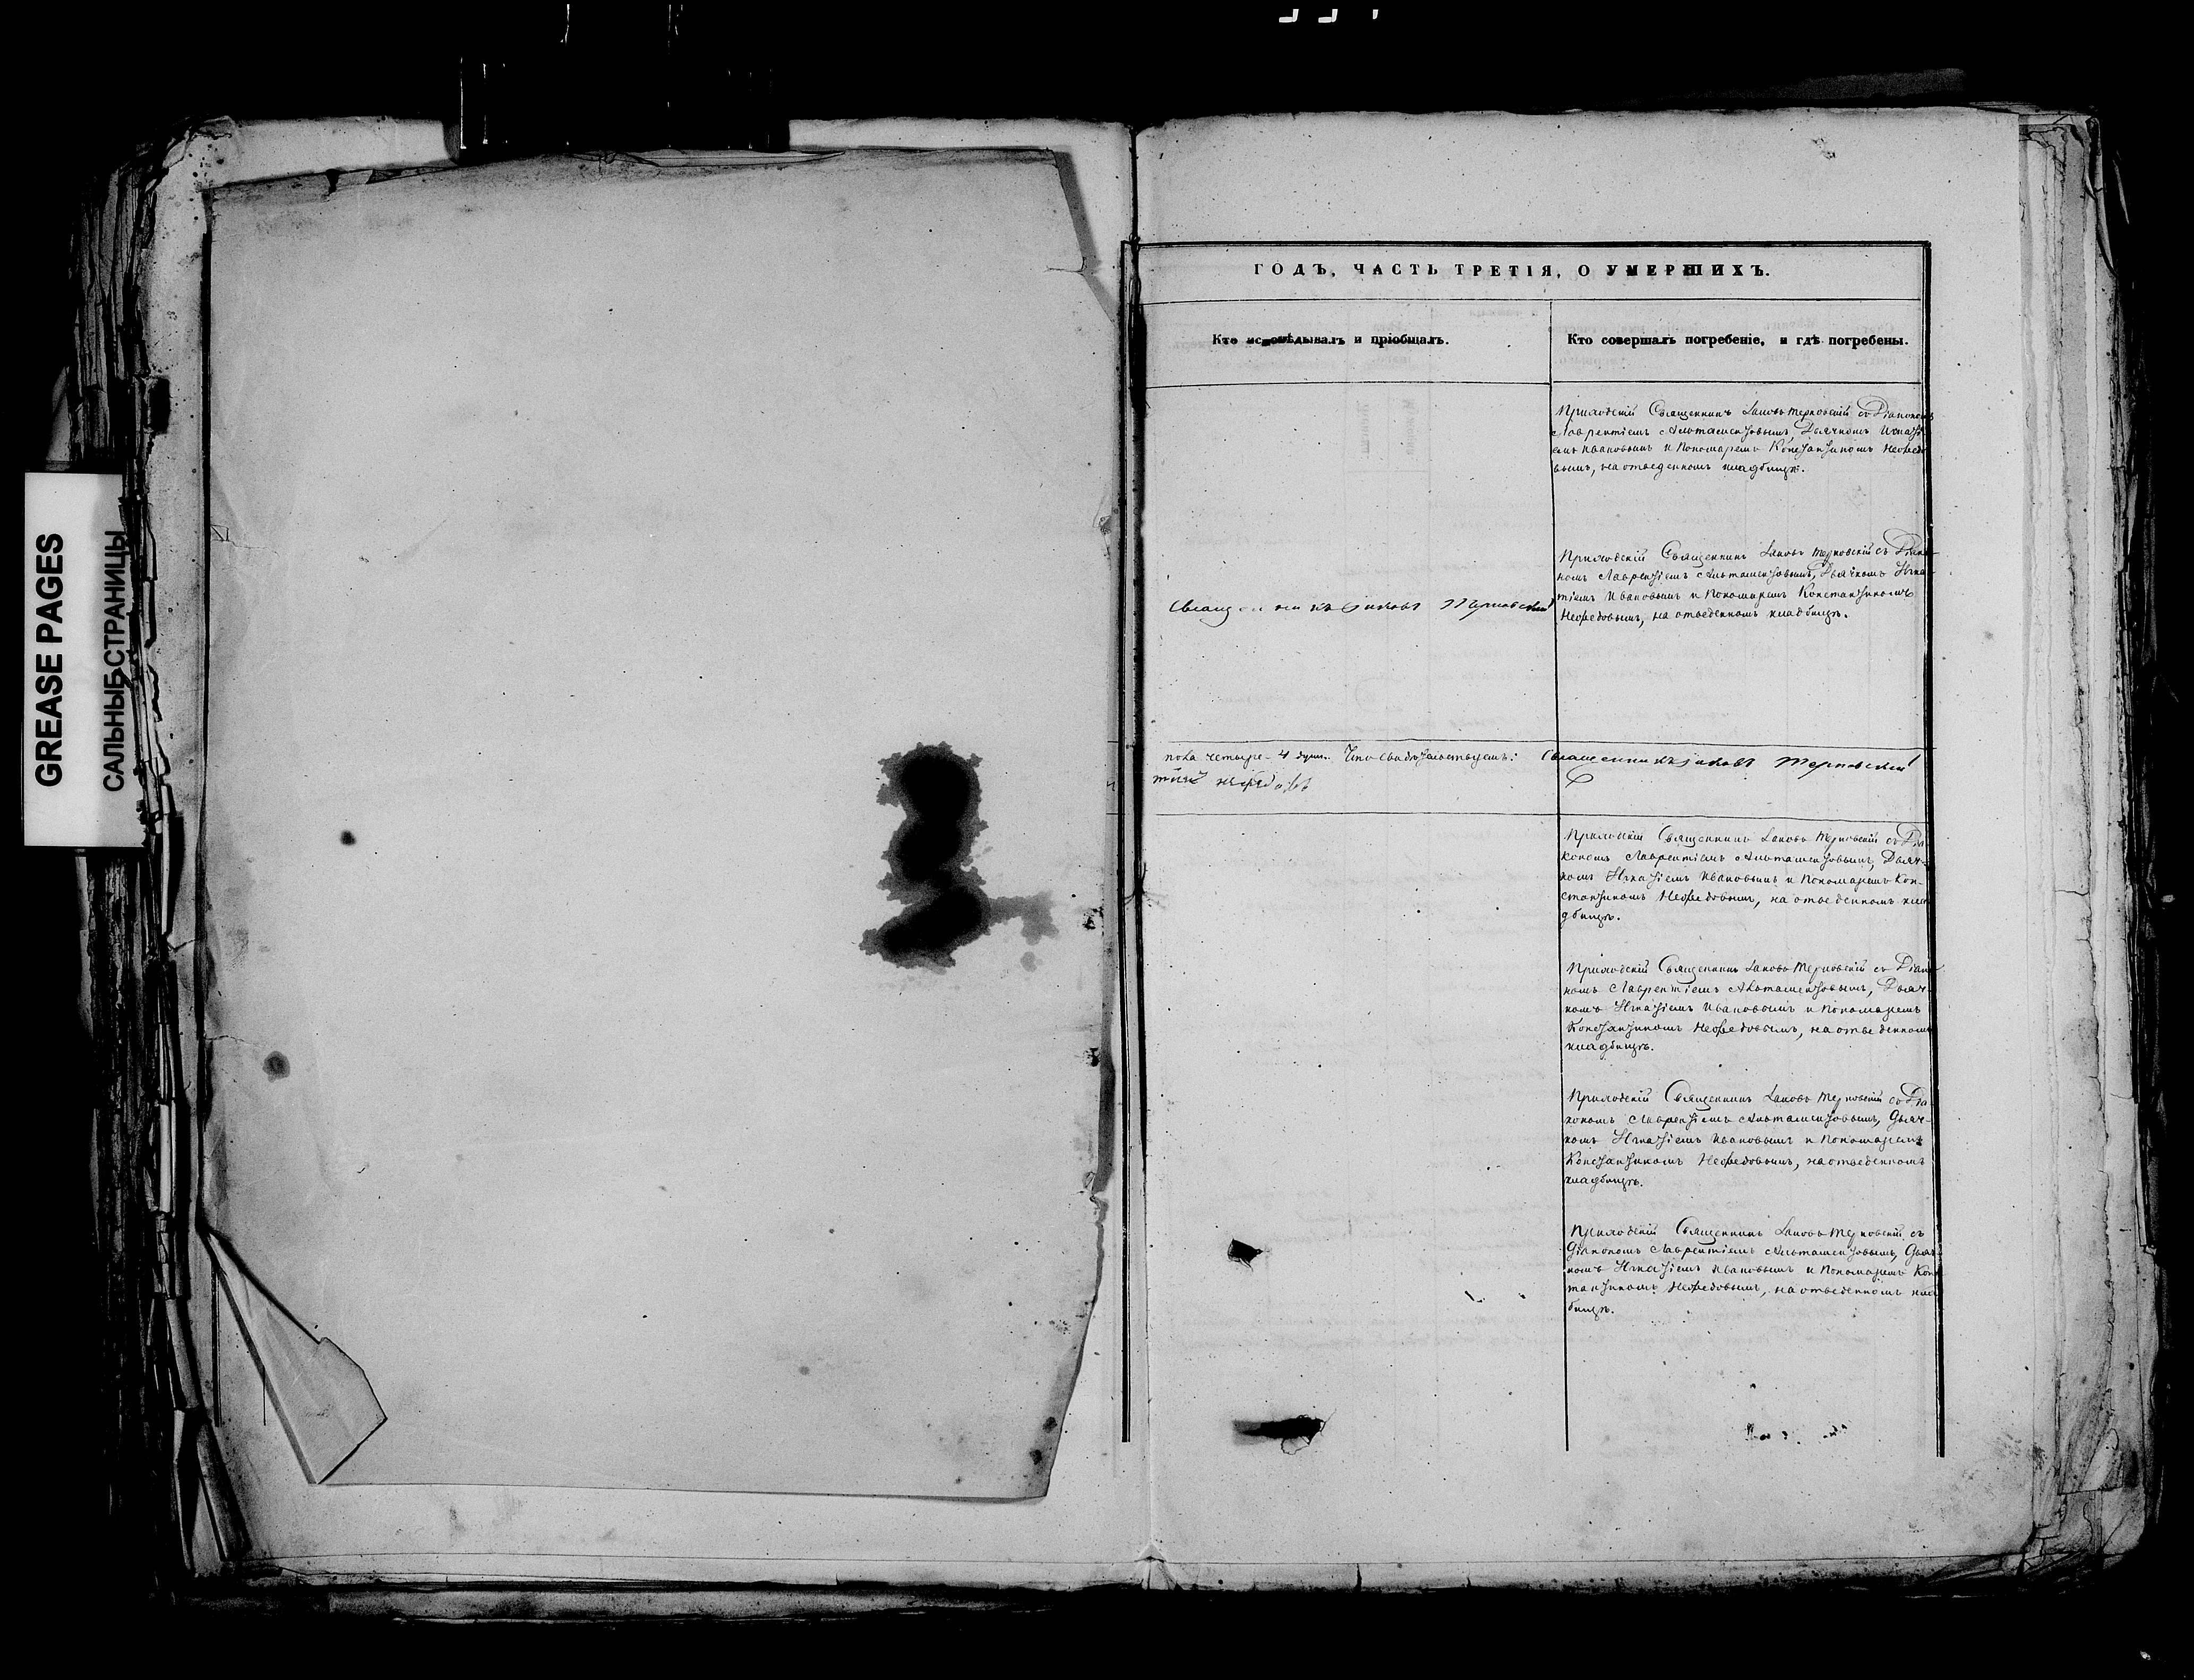 GREASE PAGES
САЛЬНЫЕ СТРАНИЦЫ
ГОДЪ, ЧАСТЬ ТРЕТІЯ, О УМЕРШИХЪ.
Кто исповѣдывалъ и пріобщалъ.
Кто совершалъ погребеніе, и гдѣ погребены.
Приходскій Священникъ Іаковъ Терновскій съ Діакономъ
Лаврентіемъ Дьячкомъ Игнаті
емъ Ивановымъ и Пономаремъ Константиномъ Нефедо
вымъ, на отведенномъ кладбищѣ.
Приходскій Священникъ Іаковъ Терновскій съ Діако
номъ Лаврентіемъ Дьячкомъ Игна
тіемъ Ивановымъ и Пономаремъ Константиномъ
Нефедовымъ, на отведенномъ кладбищѣ.
Священникъ Іаковъ Терновскій
пола четыре - 4 души. Что свидѣтельствуемъ: Священникъ Іаковъ Терновскій
Нефедовъ
Приходскій Священникъ Іаковъ Терновскій съ Діа
кономъ Лаврентіемъ Дьяч-
комъ Игнатіемъ Ивановымъ и Пономаремъ Кон-
стантиномъ Нефедовымъ, на отведенномъ кла
дбищѣ.
Приходскій Священникъ Іаковъ Терновскій съ Діако
номъ Лаврентіемъ Дьяч-
комъ Игнатіемъ Ивановымъ и Пономаремъ
Константиномъ Нефедовымъ, на отведенномъ
кладбищѣ.
Приходскій Священникъ Іаковъ Терновскій съ Діа
кономъ Лаврентіемъ Дьяч-
комъ Игнатіемъ Ивановымъ и Пономаремъ
Константиномъ Нефедовымъ, на отведенномъ
кладбищѣ.
Приходскій Священникъ Іаковъ Терновскій съ
Діакономъ Лаврентіемъ Дьяч
комъ Игнатіемъ Ивановымъ и Пономаремъ Конс
тантиномъ Нефедовымъ, на отведенномъ клад
бищѣ.